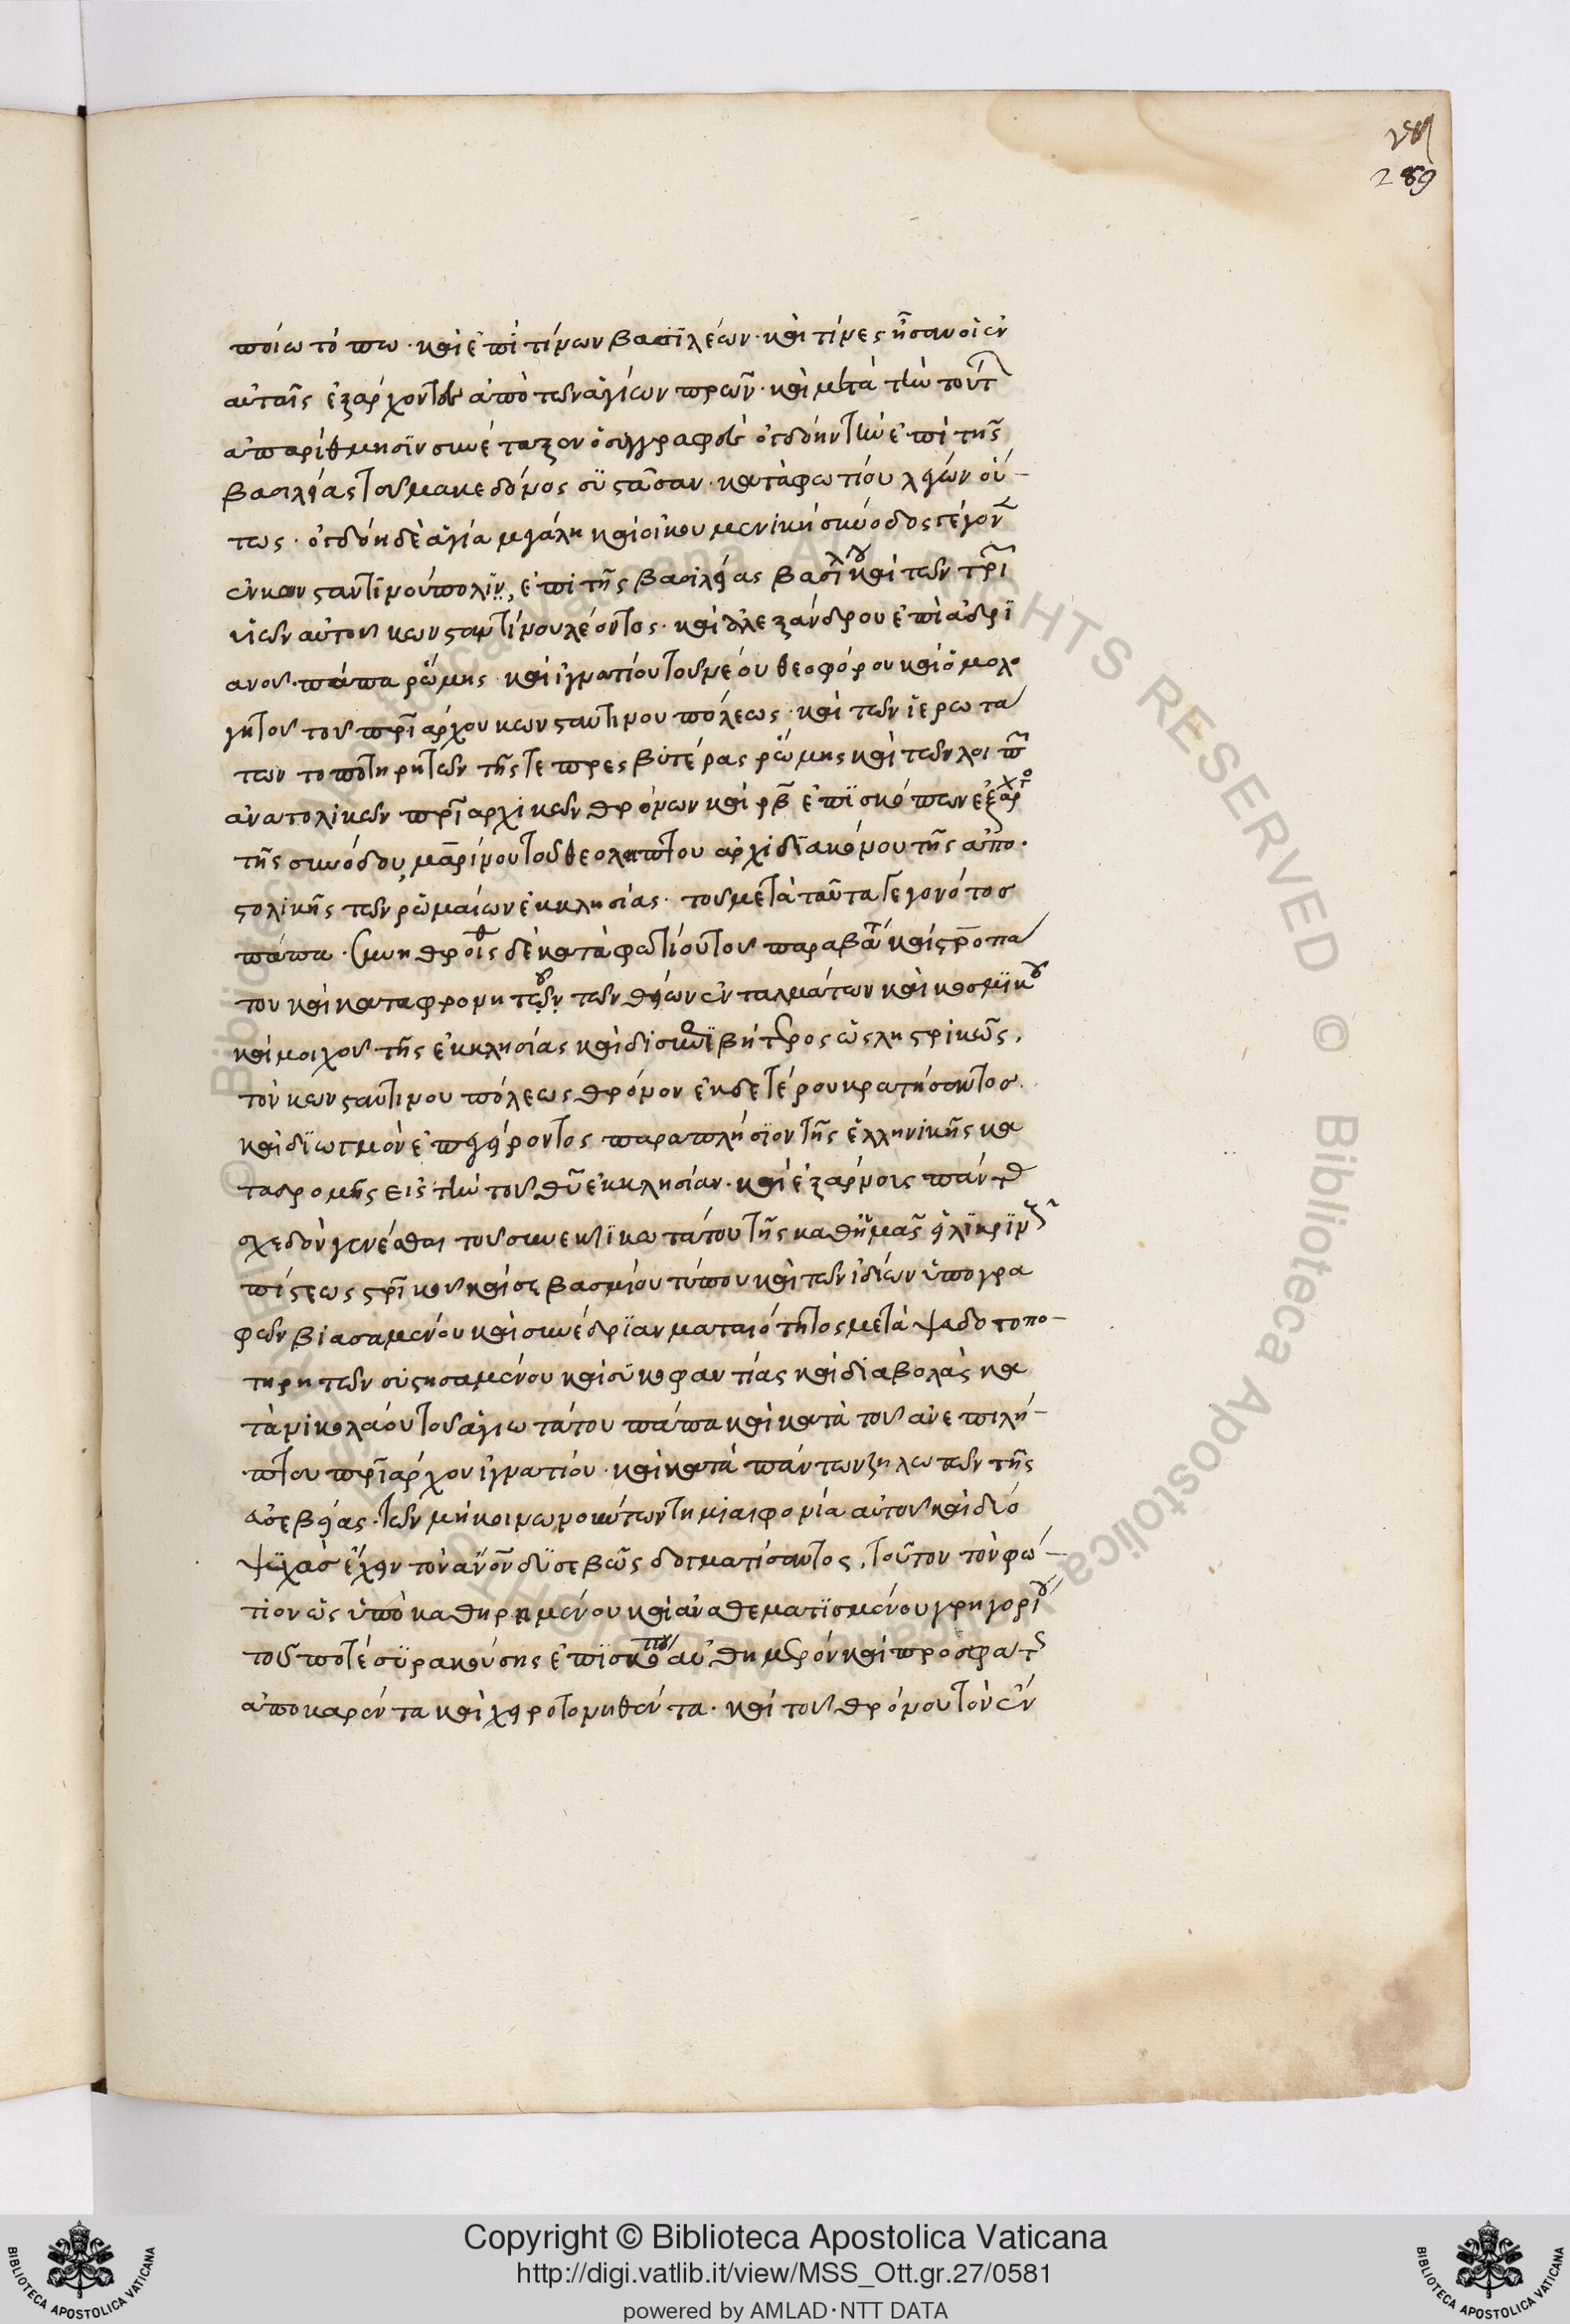 289
ποίω τόπω · καὶ ἐπὶ τίνων βασϊλέων · καὶ τίνες ἦσαν οἱ ἐν
αὐταῖς ἐξάρχοντες ἀπὸ τῶν ἁγίων πρων · καὶ μετὰ τὴν τουτ
ἀπαρίθμησϊν συνέταξεν ὁ συγγραφεὺς ὀγδόην τὴν ἐπὶ τῆς
βασιλείας τοῦ μακεδόνος συστᾶσαν · κατὰ φωτίου λέγων οὕ-
τως · ὀγδόη δὲ ἁγία μεγάλη καὶ οἰκουμενικὴ σύνοδος γέγον
ἐν κωνσταντινουπόλει, ἐπὶ τῆς βασιλείας βασιλου καὶ τῶν τρι
υἱῶν αὐτοῦ κωνσταντίνου λέοντος · καὶ ἀλεξάνδρου ἐπὶ ἀδρϊ
ανοῦ · πάπα ῥώμης καὶ ἰγνατίου τοῦ νέου θεοφόρου καὶ ὁμολο
γητοῦ τοῦ πριάρχου κωνσταντινουπόλεως · καὶ τῶν ἱερωτά
των τοποτηρητῶν τῆς τε πρεσβυτέρας ῥώμης καὶ τῶν λοιπ
ἀνατολικῶν πριαρχικῶν θρόνων καὶ ρβ ἐπϊσκόπων ἐξαρχο
τῆς συνόδου, μαρίνου τοῦ θεολήπτου ἀρχιδϊακόνου τῆς ἀπο·
στολικῆς τῶν ῥωμαίων ἐκκλησίας · τοῦ μετὰ ταῦτα γεγονότος
πάπα · συνηθροίσθ δὲ κατὰ φωτίου τοῦ παραβάτ καὶ στροπά
του καὶ καταφρονητοῦ τῶν θείων ἐνταλμάτων καὶ κοσμϊκου
καὶ μοιχοῦ τῆς ἐκκλησίας καὶ ὡς λῃστρικῶς,
τὸν κωνσταντινουπόλεως θρόνον ἐκ δευτέρου κρατήσαντος
καὶ δϊωγμὸν ἐπεγείροντος παραπλήσϊον τῆς ἑλληνικῆς κα
ταδρομῆς εἰς τὴν τοῦ θῦ ἐκκλησίαν · καὶ ἐξάρνους πάντας
σχεδὸν γενέσθαι τοῦ συνεκτϊκωτάτου τῆς καθ' ἡμᾶς εἰλϊκρϊν
πίστεως στρικοῦ καὶ σεβασμίου τύπου καὶ τῶν ἰδίων ὑπογρα
φῶν βιασαμένου καὶ συνέδρϊαν ματαιότητος μετὰ ψευδοτοπο-
τηρητῶν συστησαμένου καὶ συκοφαντίας καὶ διαβολὰς κα
τὰ νικολάου τοῦ ἁγιωτάτου πάπα καὶ κατὰ τοῦ ἀνεπιλή-
πτου πριάρχου ἰγνατίου · καὶ κατὰ πάντων ζηλωτῶν τῆς
εὐσεβείας · τῶν μὴ κοινωνούντων τῆ μιαιφονία αὐτοῦ καὶ δύο
ψυχὰς ἔχειν τὸν ἄνον δυσεβῶς δογματίσαντος, τοῦτον τὸν φώ-
τιον ὡς ὑπὸ καθηρημένου καὶ ἀναθεματϊσμένου γρηγορίου
τοῦ ποτὲ συρακούσης ἐπϊσκόπου αὐθημερὸν καὶ πρόσφατ
ἀποκαρέντα καὶ χειροτονηθέντα · καὶ τοῦ θρόνου τὸν ἐν
Copyright © Biblioteca Apostolica Vaticana
http://digi.vatlib.it/view/MSS_Ott.gr.27/0581
powered by AMLAD·NTT DATA
BIBLIOTECA APOSTOLICA VATICANA
BIBLIOTECA APOSTOLICA VATICANA